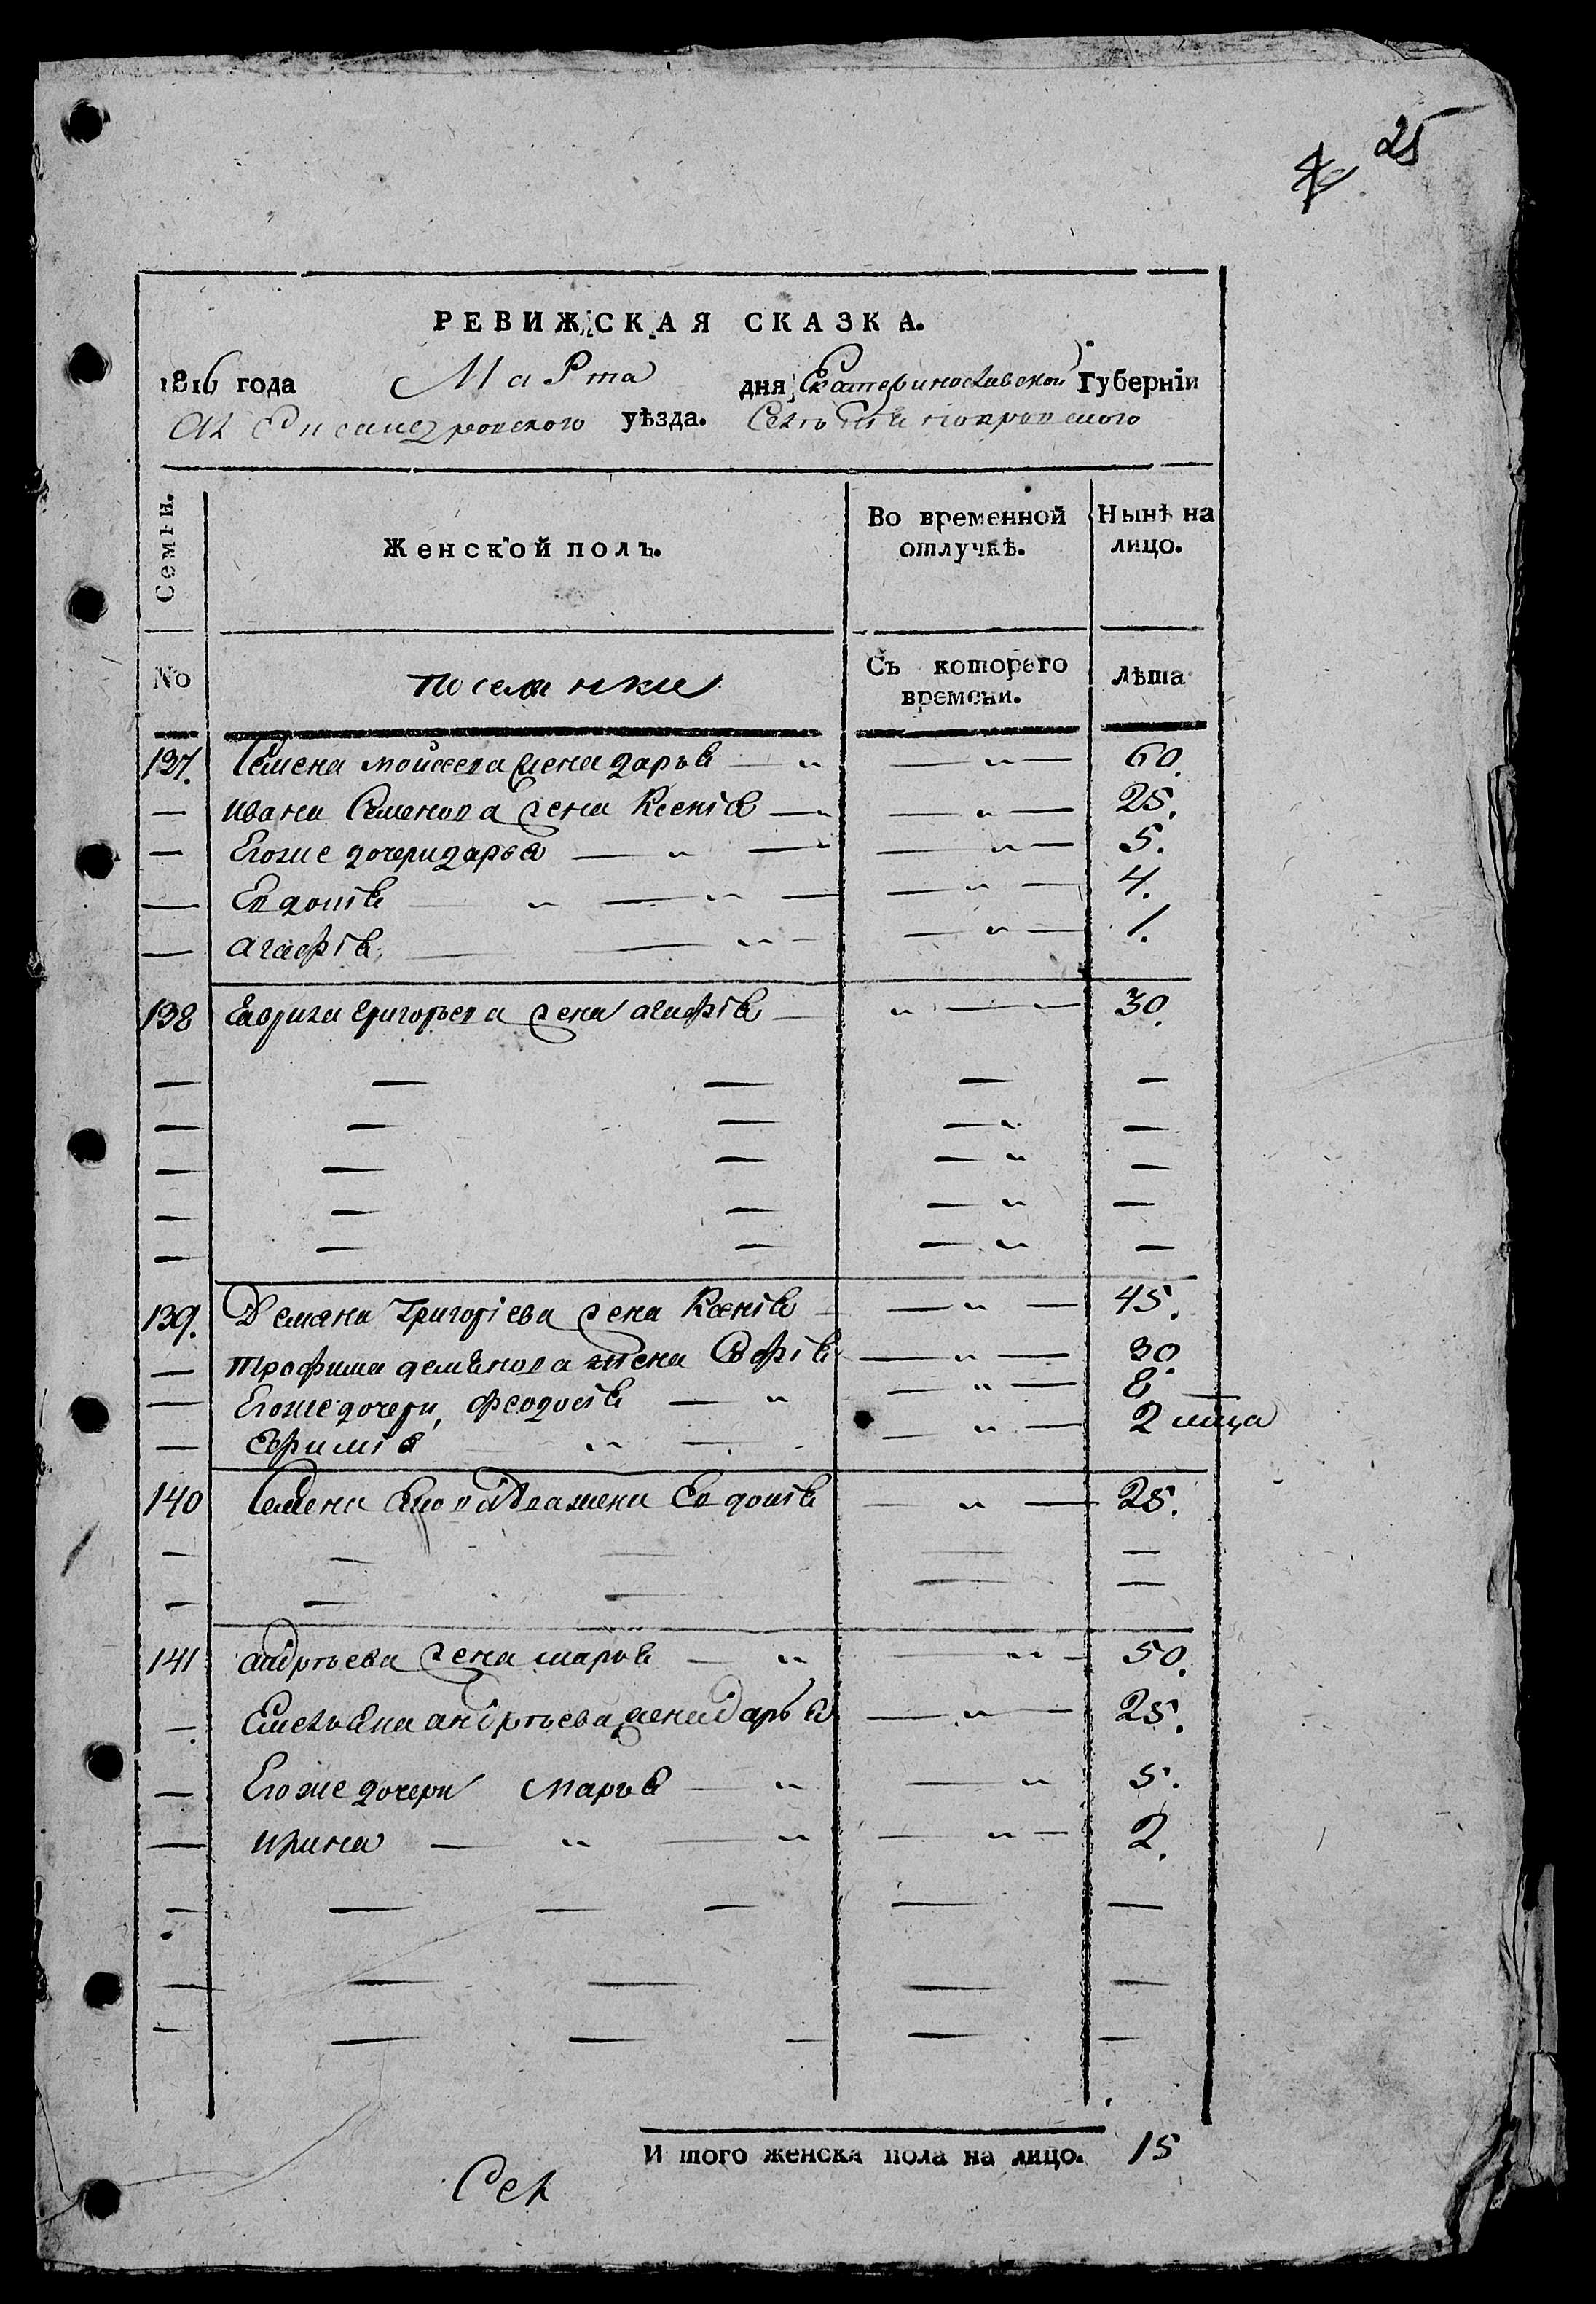 25
РЕВИЖСКАЯ СКАЗКА.
1816 года Марта дня Екатеринославской Губерніи
Александровского уѣзда. Села покровского
Семьи. Женской полъ. Во временной отлучкѣ. Нынѣ на лицо.
No поселянки Съ которого времени. лѣта
137. Семена мойсеева жена дарья — „ — „ — 60.
— Ивана Семенова жена Ксенія — „ — „ — 25.
— Егоже дочери дарья — „ — „ — „ — 5.
— Евдокія — „ — „ — — „ — 4.
— агафія — — „ — — „ — 1.
138 Гаврила григорьева жена агафія — „ — „ — 30.
— — — — —
— — — — „ —
— — — — „ —
— — — — „ —
— — — — „ —
139. Демяна Григоріева жена Ксенія — — „ — 45.
— трофима демянова жена Софія — „ — 30
— Егоже дочери, феодосія — „ — „ — 8
— Ефимія — „ — — „ — 2 мца
140 Семена жена Евдокія — „ — 25.
— — — — —
— — — — —
141 андрѣева жена марья — „ — „ — 50.
— Емельяна андрѣева жена дарья — „ — 25.
— Егоже дочери марья — „ — „ 5.
— ирина — „ — „ — „ — 2.
— — — — — —
— — — — —
— — — — — —
И того женска пола на лицо. 15
Сел